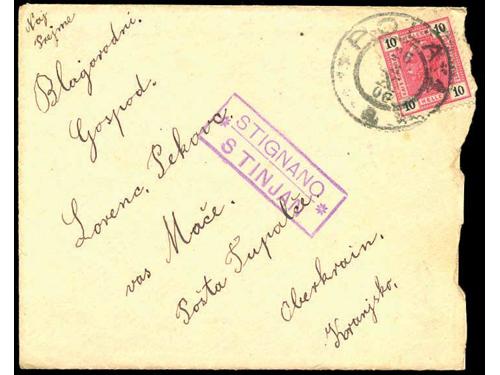 Naj
Prejme
Blagorodni
Gospod.
Lorenc. Pekovc
vas Mače.
Pošta Tupalče.
Oberkrain.
Kranjsko.
* STIGNANO
S TINJAN *
POLA
10 10
10 HELLER 10